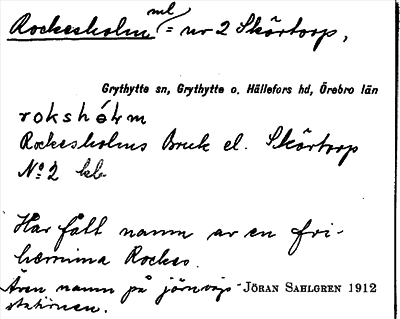 Rockesholm ml = nr 2 Skörtorp,
Grythytte sn, Grythytte o. Hällefors hd, Örebro län
Rockesholms Bruk el. Skörtorp
No 2 kb
Har fått namn av en fri-
herrinna Rockes.
Även namn på järnvägs-
stationen.
JÖRAN SAHLGREN 1912